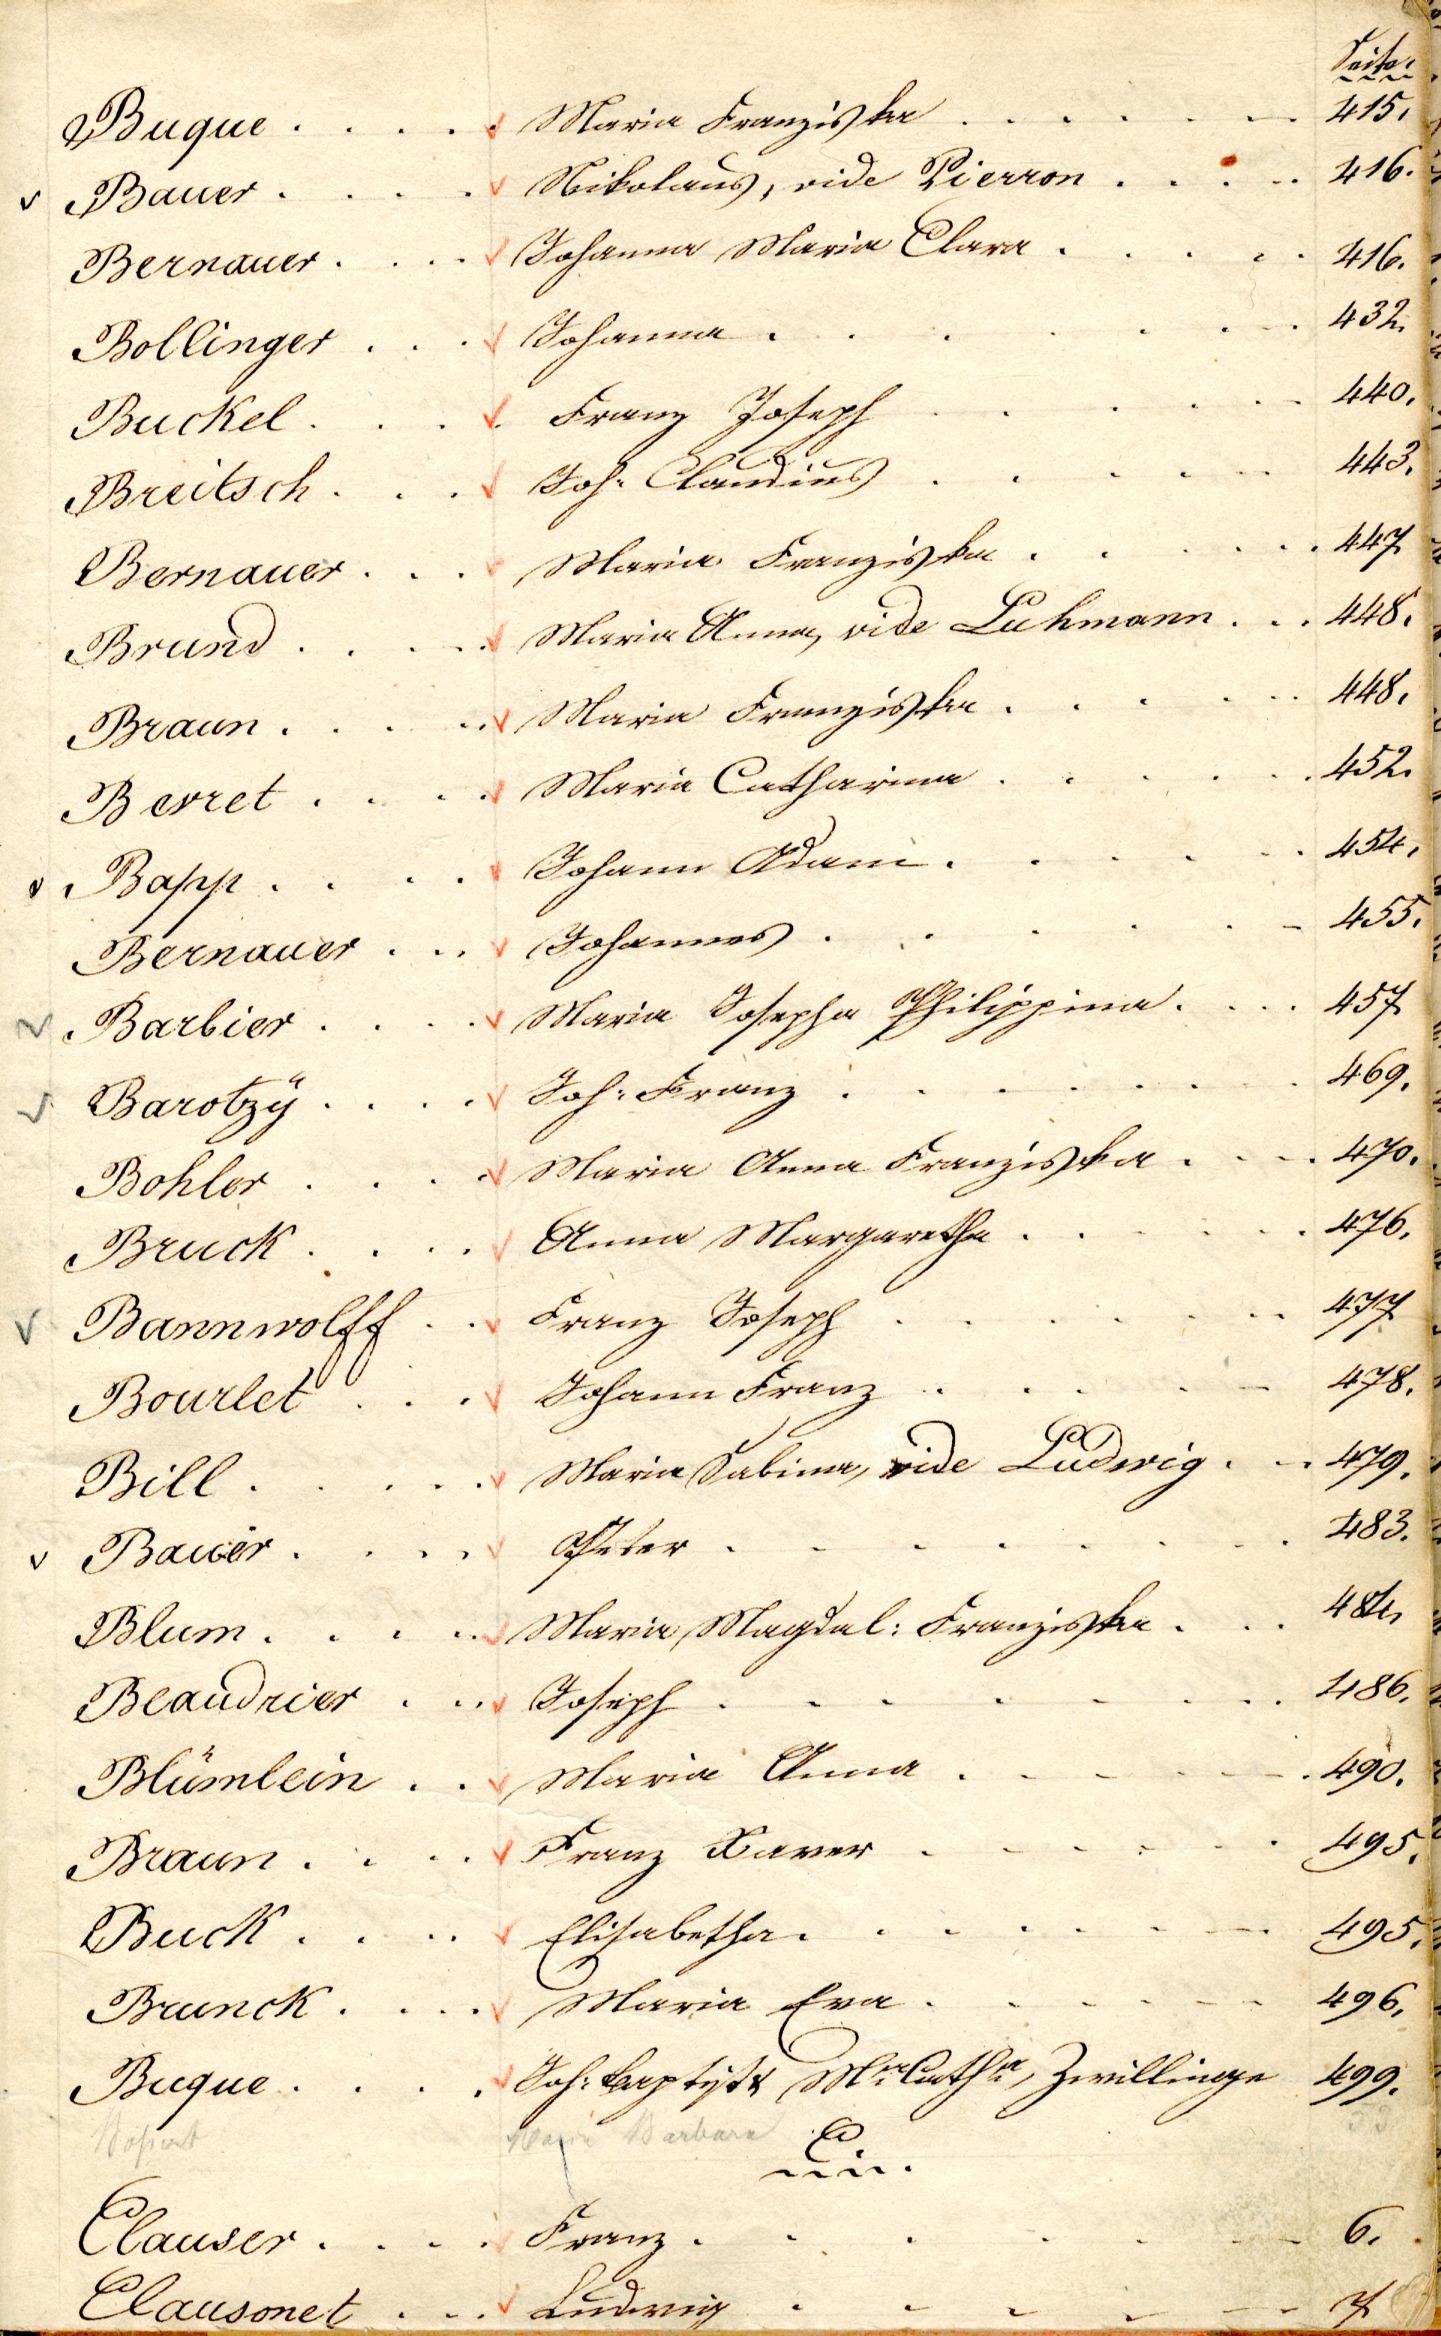 Seite.
Buque . . . . Maria Franziska . . . . . . 415.
Bauer . . . . Nikolaus, vide Pierron . . . . . 416.
Bernauer . . . . Johanna Maria Clara . . . . . 416.
Bollinger . . . Johanna . . . . . . . 432.
Buckel . . . . Franz Joseph . . . . . . 440.
Breitsch . . . Joh: Claudius . . . . . 443.
Bernauer . . . Maria Franziska . . . . . . 447
Brund . . . . Maria Anna, vide Luhmann . . . 448.
Braun . . . . Maria Franziska . . . . . 448.
Berret . . . . Maria Catharina . . . . . . 452.
Bapp . . . . Johann Adam . . . . . . 454.
Bernauer . . . Johannes . . . . . . 455.
Barbier . . . . Maria Josepha Philippina . . . . 457
Barotzÿ . . . . Joh: Franz . . . . . . . 469.
Bohler . . . . Maria Anna Franziska . . . . 470.
Bruck . . . . Anna Margaretha . . . . . . 476.
Bannwolff . . Franz Joseph . . . . . . 477
Bourlet . . . Johann Franz . . . . . 478.
Bill . . . . . Maria Sabina, vide Ludwig . . . 479.
Bauer . . . . Peter . . . . . . . . 483.
Blum . . . . Maria Magdal: Franziska . . . 484.
Beaudrier . . . Joseph . . . . . . . 486.
Blümlein . . Maria Anna . . . . . . 490.
Braun . . . . Franz Xaver . . . . . . 495.
Buck . . . . Elisabetha . . . . . . . 495.
Brunck . . . . Maria Eva . . . . . . 496.
Buque . . . . Joh: Baptist & Mª Cathª, Zwillinge 499.
Maria Barbara
C.
Clauser . . . . Franz . . . . . . 6.
Clausonet . . . Ludwig . . . . . . 7